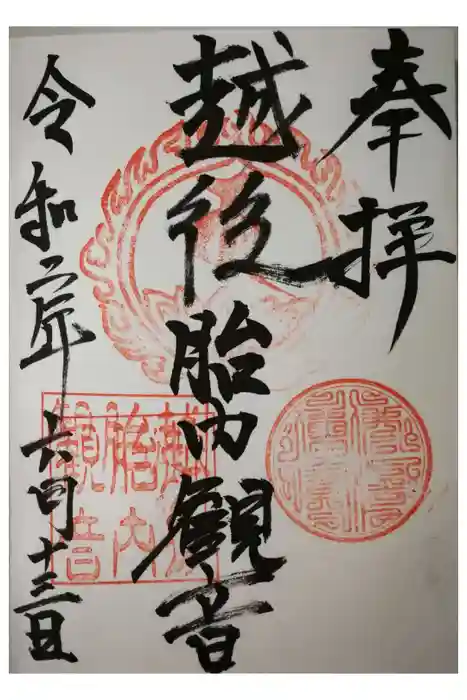 奉拝
越後胎内觀音
令和二年六月十三日
越後
胎内
觀音